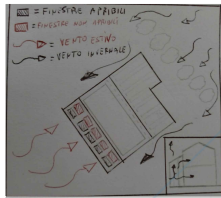 = FINESTRE APRIBILI
= FINESTRE NON APRIBILI
= VENTO ESTIVO
= VENTO INVERNALE